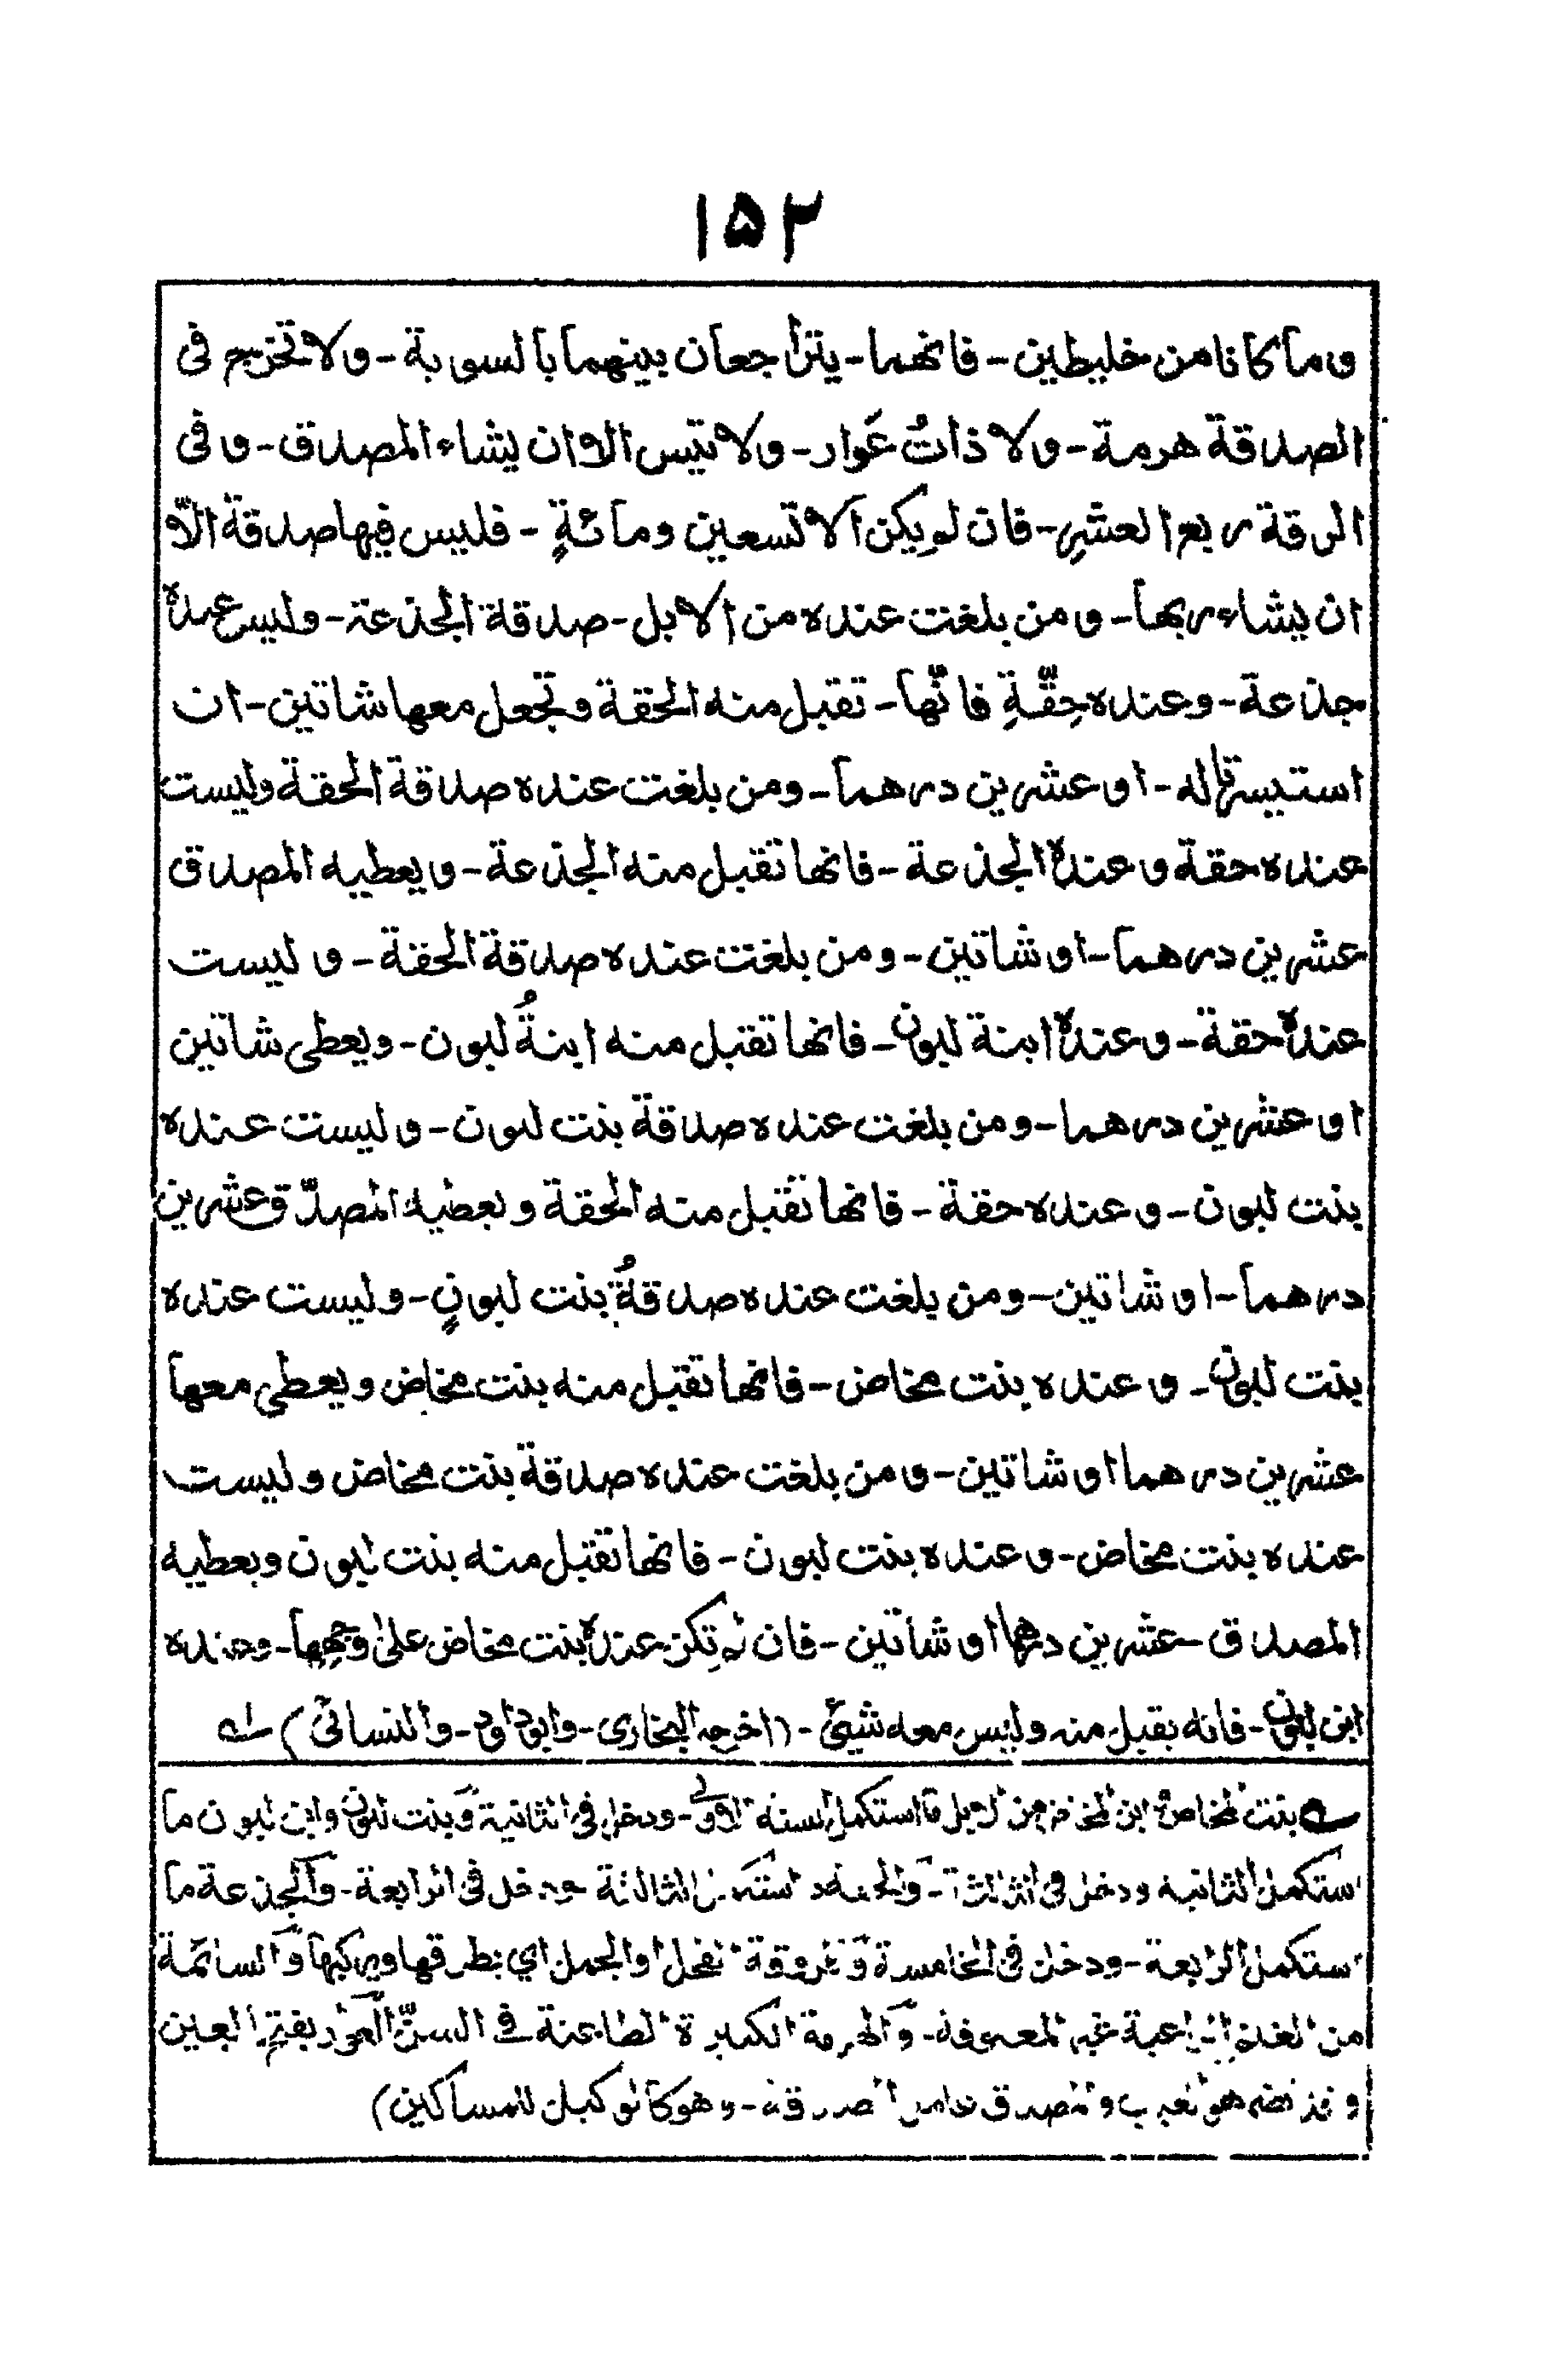 ۱۵۲
وما كانا من خليطين - فانهما - يتراجعان بينهما بالسوية - ولا تخرج فى
الصدقة هرمة - ولا ذاتُ عَوار - ولا تيس الا ان يشاء المصدق - وفى
الرقة ربع العشرِ - فان لم يكن الا تسعين ومائةٍ - فليس فيها صدقة الّا
ان يشاء ربها - ومن بلغت عنده من الابل - صدقة الجذعة - وليس عنده
جذعة - وعنده حِقّةِ فانّها - تقبل منه الحقة وتجعل معها شاتين - ان
استيسرتا له - او عشرين درهما - ومن بلغت عنده صدقة الحقة وليست
عنده حقة وعنده الجذعة - فانها تقبل منه الجذعة - ويعطيه المصدق
عشرين درهما - او شاتين - ومن بلغت عنده صدقة الحقة - وليست
عنده حقة - وعنده ابنة لبون - فانها تقبل منه ابنةُ لبون - ويعطى شاتين
او عشرين درهما - ومن بلغت عنده صدقة بنت لبون - وليست عنده
بنت لبون - وعنده حقة - فانها تقبل منه الحقة ويعطيه المصدّق عشرين
درهما - او شاتين - ومن بلغت عنده صدقةُ بنت لبونٍ - وليست عنده
بنت لبون - وعنده بنت مخاض - فانها تقبل منه بنت مخاض ويعطي معها
عشرين درهما او شاتين - ومن بلغت عنده صدقة بنت مخاض وليست
عنده بنت مخاض - وعنده بنت لبون - فانها تقبل منه بنت لبون ويعطيه
المصدق - عشرين درهما او شاتين - فان لم تكن عنده بنت مخاض على وجهها - وعنده
ابن لبون - فانه يقبل منه وليس معه شيئ - (اخرجه البخارى - وابو داود - والنسائى) له
له بنت المخاض ابن المخاض من الابل ما استكمل السنة الاولى - ودخل فى الثانية وبنت لبون وابن لبون ما
استكمل الثانية ودخل فى الثالثة - والحقة استكمل الثالثة ودخل فى الرابعة - والجذعة ما
استكمل الرابعة - ودخل فى الخامسة وطروقة الفحل او الجمل اي يطرقها ويركبها والسائمة
من الغنم الراعية غير المعلوفة - والهرمة الكبيرة الطاعنة فى السنّ العوار بفتح العين
هو العيب والمصدق عامل الصدقة - وهو كالوكيل للمساكين)